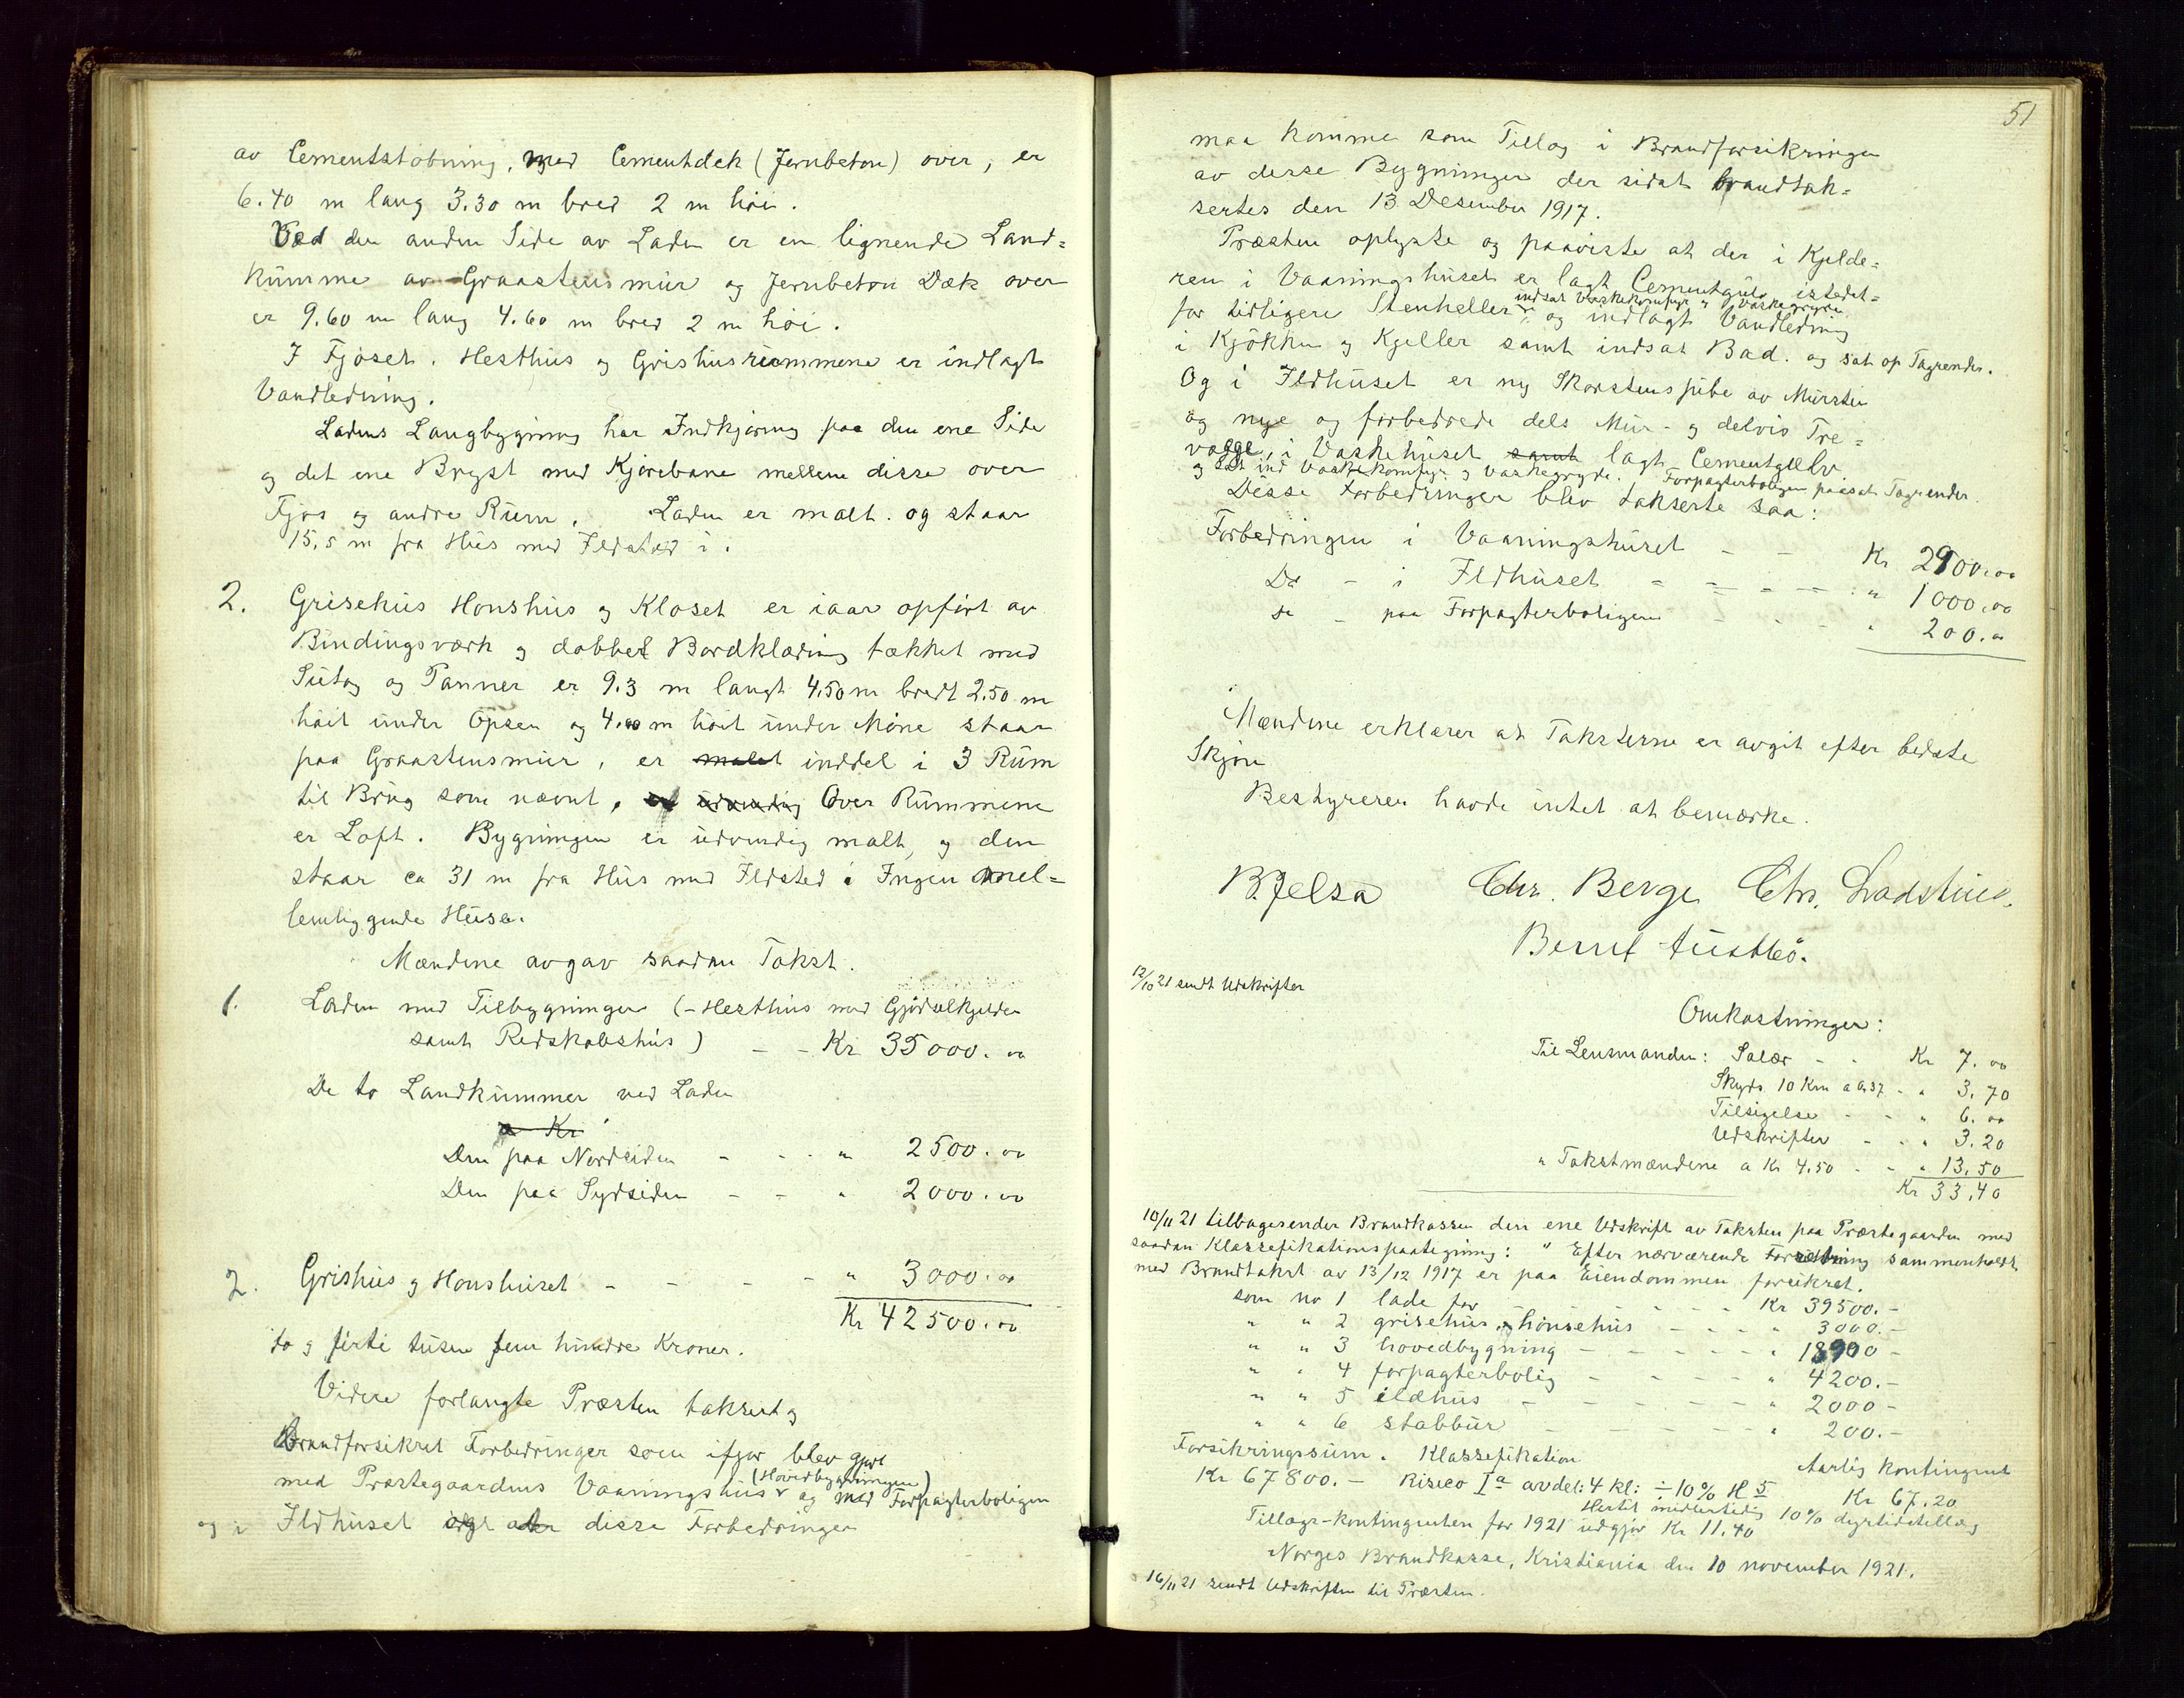 av Cementstøbning, med Cementdek (Jernbeton) over, er
6.40 m lang 3.30 m bred 2 m høi.
Ved den anden Side av Laden er en lignende Land=
kumme av Graastensmur og Jernbeton Dæk over
er 9.60 m lang 4.60 m bred 2 m høi.
I Fjøset, Hesthus og Grishusrummene er indlagt
Vandledning.
Ladens Langbygning har Indkjøring paa den ene Side
og det ene Bryst med Kjørebane mellem disse over
Fjøs og andre Rum. Laden er malt og staar
15,5 m fra Hus med Ildsted i.
2. Grisehus Hønshus og Kloset er iaar opført av
Bindingsværk og dobbel Bordklædning tækket med
Sutag og Panner er 9.3 m langt 4.50 m bredt 2.50 m
høit under Opsen og 4.00 m høit under Møne staar
paa Graastensmur, er malet inddel i 3 Rum
til Brug som nævnt, er udvendig Over Rummene
er Loft. Bygningen er udvendig malt, og den
staar ca 31 m fra Hus med Ildsted i Ingen mel=
lemliggende Huse.
Mændene avgav saadan Takst.
1. Laden med Tilbygninger (- Hesthus med Gjødselkjelder
samt Redskabshus) - - Kr 35000.00
De to Landkummer ved Laden
a Kr
Den paa Nordsiden - - - " 2500.00
Den paa Sydsiden - - " 2000.00
2. Grishus og Hønshuset - - - - " 3000.00
Kr 42500.00
to og førti tusen fem hundre Kroner.
Videre forlangte Præsten taksert og
Brandforsikret Forbedringer som ifjor blev gjort
(Hovedbygningen)
med Præstegaardens Vaaningshus og med Forpagterboligen
og i Ildhuset disse Forbedringer
51
maa komme som Tillæg i Brandforsikringen
av disse Bygninger der sidst brandtak=
sertes den 13 Desember 1917.
Præsten oplyste og paaviste at der i Kjelde=
ren i Vaaningshuset er lagt Cementgulv istedet=
indsat Vaskekomfyr og Vaskegryde
for tidligere Stenheller og indlagt Vandledning
i Kjøkken og Kjeller samt indsat Bad. og sat op Tagrender.
Og i Ildhuset er ny Skorstenspibe av Mursten
og nye og forbedrede dels Mur- og delvis Tre=
vægge, i Vaskehuset samt lagt Cementgulv
og sat ind Vaskekomfyr og Vaskegryde. Forpagterboligen paasat Tagrender.
Disse Forbedringer blev takserte saa:
Forbedringen i Vaaningshuset - - Kr 2900.00
Do - i Ildhuset - - - - " 1000.00
do - paa Forpagterboligen - - - " 200.00
Mændene erklærer at Taksterne er avgit efter bedste
Skjøn
Bestyreren havde intet at bemærke.
B. Jelsa Chr. Berge Chr. Ladstuen
Bernt Austbø.
12/10 21 sendt Udskrifter
Omkostninger:
Til Lensmanden: Salær - - Kr 7.00
Skyds 10 Km a 0.37 - " 3.70
Tilsigelse - - " 6.00
Udskrifter - - " 3.20
" Takstmændene a Kr 4.50 - - " 13.50
Kr 33,40
10/11 21 tilbagesender Brandkassen den ene Udskrift av Taksten paa Præstegaarden med
saadan Klassefikationspaategning: " Efter nærværende Forretning sammenholdt
med Brandtakst av 13/12 1917 er paa Eiendommen forsikret.
som no 1 lade for - - - - Kr 39500.-
" " 2 grisehus, hønsehus - - - " 3000.-
" " 3 hovedbygning - - - - " 18900 -
" " 4 forpagterbolig - - - - " 4200.-
" " 5 ildhus - - - - - " 2000 -
" " 6 stabbur - - - - - " 200.-
Forsikringssum. Klassefikation Aarlig kontingent
Kr 67800.- Risico Iª avdel: 4 kl: ÷ 10% H 5 Kr 67.20
Hertil midlertidig 10% dyrtidstillæg
Tillægs-kontingenten for 1921 udgjør Kr 11.40
Norges Brandkasse, Kristiania den 10 november 1921.
16/11 21 sendt Udskriften til Præsten.